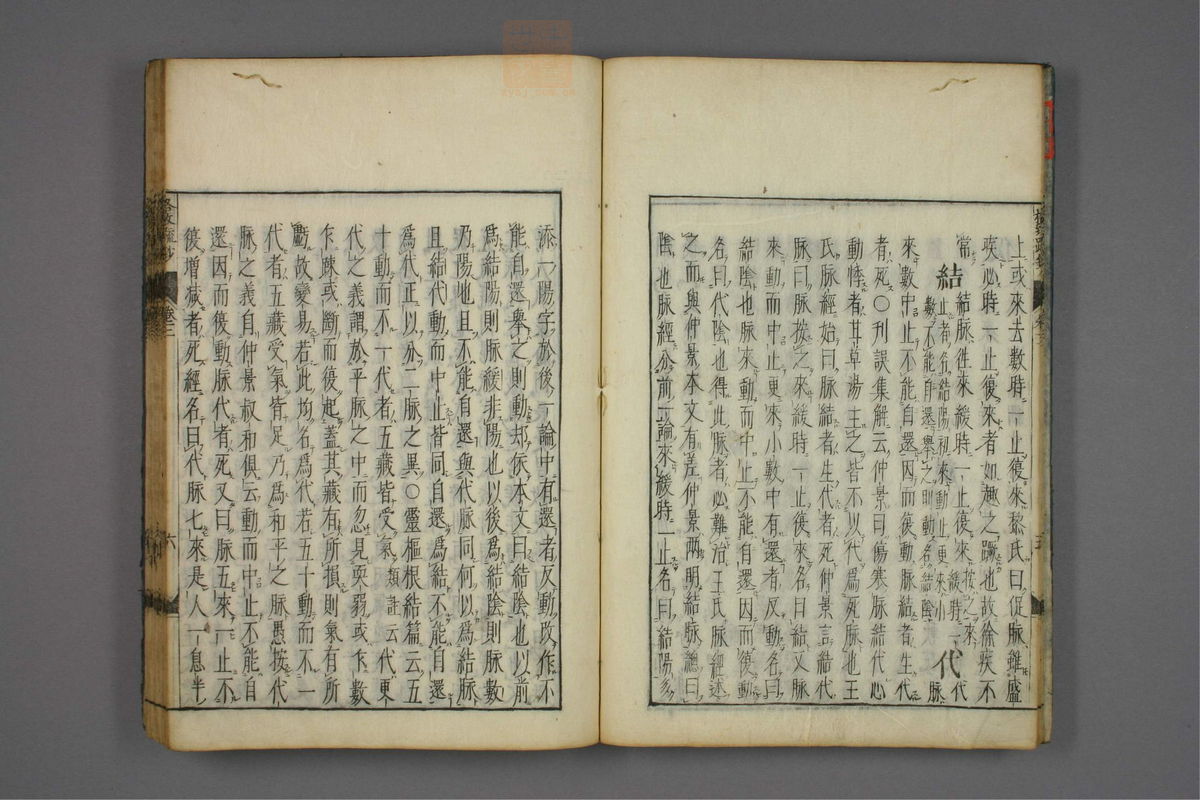 上或來去數時一止復來黎氏曰促脉雖盛
疾必時一止復來者如趨之蹶也故徐疾不
常結脉徃來緩時一止復來按之來緩時一代
結止者名結陽初來動止更來小代
數不能自還舉之則動名結陰脉
來數中止不能自還因而復動脉結者生代
者死〇刊誤集解云仲景曰傷寒脉結代心
動悸者甘草湯主之皆不以代爲死脉也王
氏脉經始曰脉結者生代者死仲景言結代
脉曰脉按之來緩時一止復來名曰結又脉
來動而中止更來小數中有還者反動名曰
結陰也脉來動而中止不能自還因而復動
名曰代陰也得此脉者必難治王氏脉經述
之而與仲景本文有差仲景兩明結脉總曰
陰也脉經分前一論來緩時一止名曰結陽多
添一陽字於後一論中有還者反動改作不
能自還舉之則動却依本文曰結陰也以前
爲結陽則脉緩非陽也以後爲結陰則脉數
乃陽地且不能自還與代脉同何以爲結脉
且結代動而中止皆同自還爲結不能自還
爲代正以分二脉之異〇靈樞根結篇云五
十動而不一代者五藏皆受氣類註云代更
代之義謂於平脉之中而忽見耎弱或乍數
乍疎或斷而復起蓋其藏有所損則氣有所
虧故變易若此均名爲代若五十動而不一
代者五藏受氣皆足乃爲和平之脉愚按代
脉之義自仲景叔和俱云動而中止不能自
還因而復動脉代者死又曰脉五來一止不
復增减者死經名曰代脉七來是人一息半
卷三
六